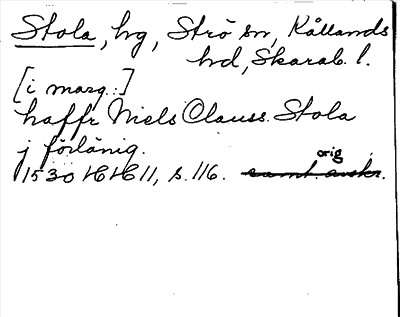 Stola, hg, Strö sn, Kållands
hd, Skarab. l.
[i marg.:]
haffr Niels Clauss. Stola
j förlänig.
1530 HH 11, s. 116. orig samt. avskr.